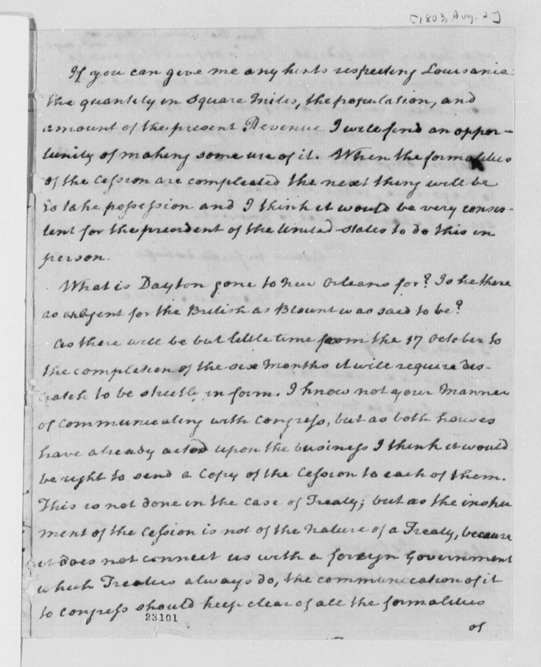 [1803, Aug. 2]
If you can give me any hints respecting Louisania
the quantity in Square Miles, the population, and
amount of the present Revenue I will find an oppor-
tunity of making some use of it. When the formalities
of the Cession are compleated the next thing will be
to take possession and I think it would be very consis-
tent for the president of the United States to do this in
person.
What is Dayton gone to New Orleans for? Is he there
as an Agent for the British as Blount was said to be?
As there will be but little time from the 17 October to
the completion of the six Months it will require dis-
patch to be strictly in form. I know not your Manner
of communicating with Congress, but as both houses
have already acted upon the business I think it would
be right to send a Copy of the Cession to each of them.
This is not done in the Case of Treaty; but as the instru
ment of the Cession is not of the nature of a Treaty, because
it does not connect us with a foreign Government
which Treaties always do, the communication of it
to Congress should keep clear of all the formalities
23101
of